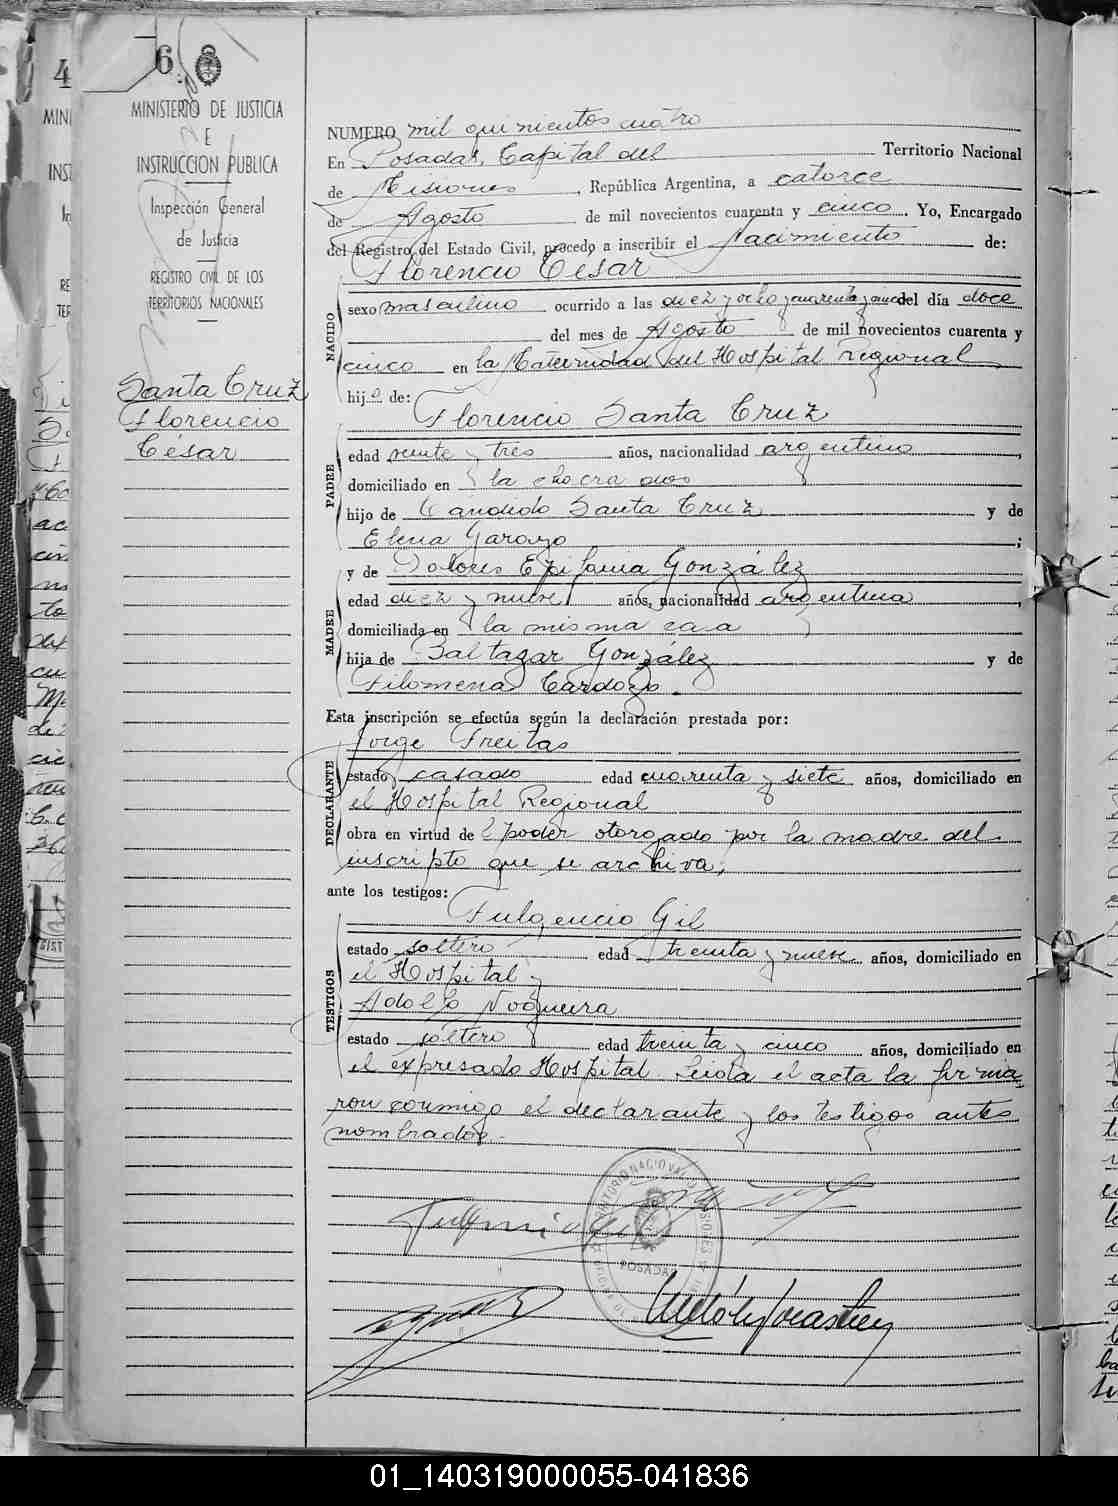 6
MINISTERIO DE JUSTICIA
E
INSTRUCCION PUBLICA
Inspección General
de Justicia
REGISTRO CIVIL DE LOS
TERRITORIOS NACIONALES
Santa Cruz
Florencio
César
NUMERO mil quinientos cuatro
En Posadas, Capital del Territorio Nacional
de Misiones, República Argentina, a catorce
de Agosto de mil novecientos cuarenta y cinco. Yo, Encargado
del Registro del Estado Civil, procedo a inscribir el Nacimiento de:
Florencio César
NACIDO
sexo masculino ocurrido a las diez y ocho y cuarenta y cinco del día doce
del mes de Agosto de mil novecientos cuarenta y
cinco en la Maternidad del Hospital Regional
hijo de:
Florencio Santa Cruz
PADRE
edad veinte y tres años, nacionalidad argentino,
domiciliado en la chacra dos
hijo de Cándido Santa Cruz y de
Elena Garozo;
y de Dolores Epifania González
MADRE
edad diez y nueve años, nacionalidad argentina,
domiciliada en la misma casa
hija de Baltazar González y de
Filomena Cardozo.
Esta inscripción se efectúa según la declaración prestada por:
Jorge Freitas
DECLARANTE
estado casado edad cuarenta y siete años, domiciliado en
el Hospital Regional
obra en virtud de el poder otorgado por la madre del
inscripto que se archiva,
ante los testigos:
Fulgencio Gil
TESTIGOS
estado soltero edad treinta y nueve años, domiciliado en
el Hospital y
Adolfo Nogueira
estado soltero edad treinta y cinco años, domiciliado en
el expresado Hospital. Leida el acta la firma
ron conmigo el declarante y los testigos antes
nombrados.
POSADAS
01_140319000055-041836